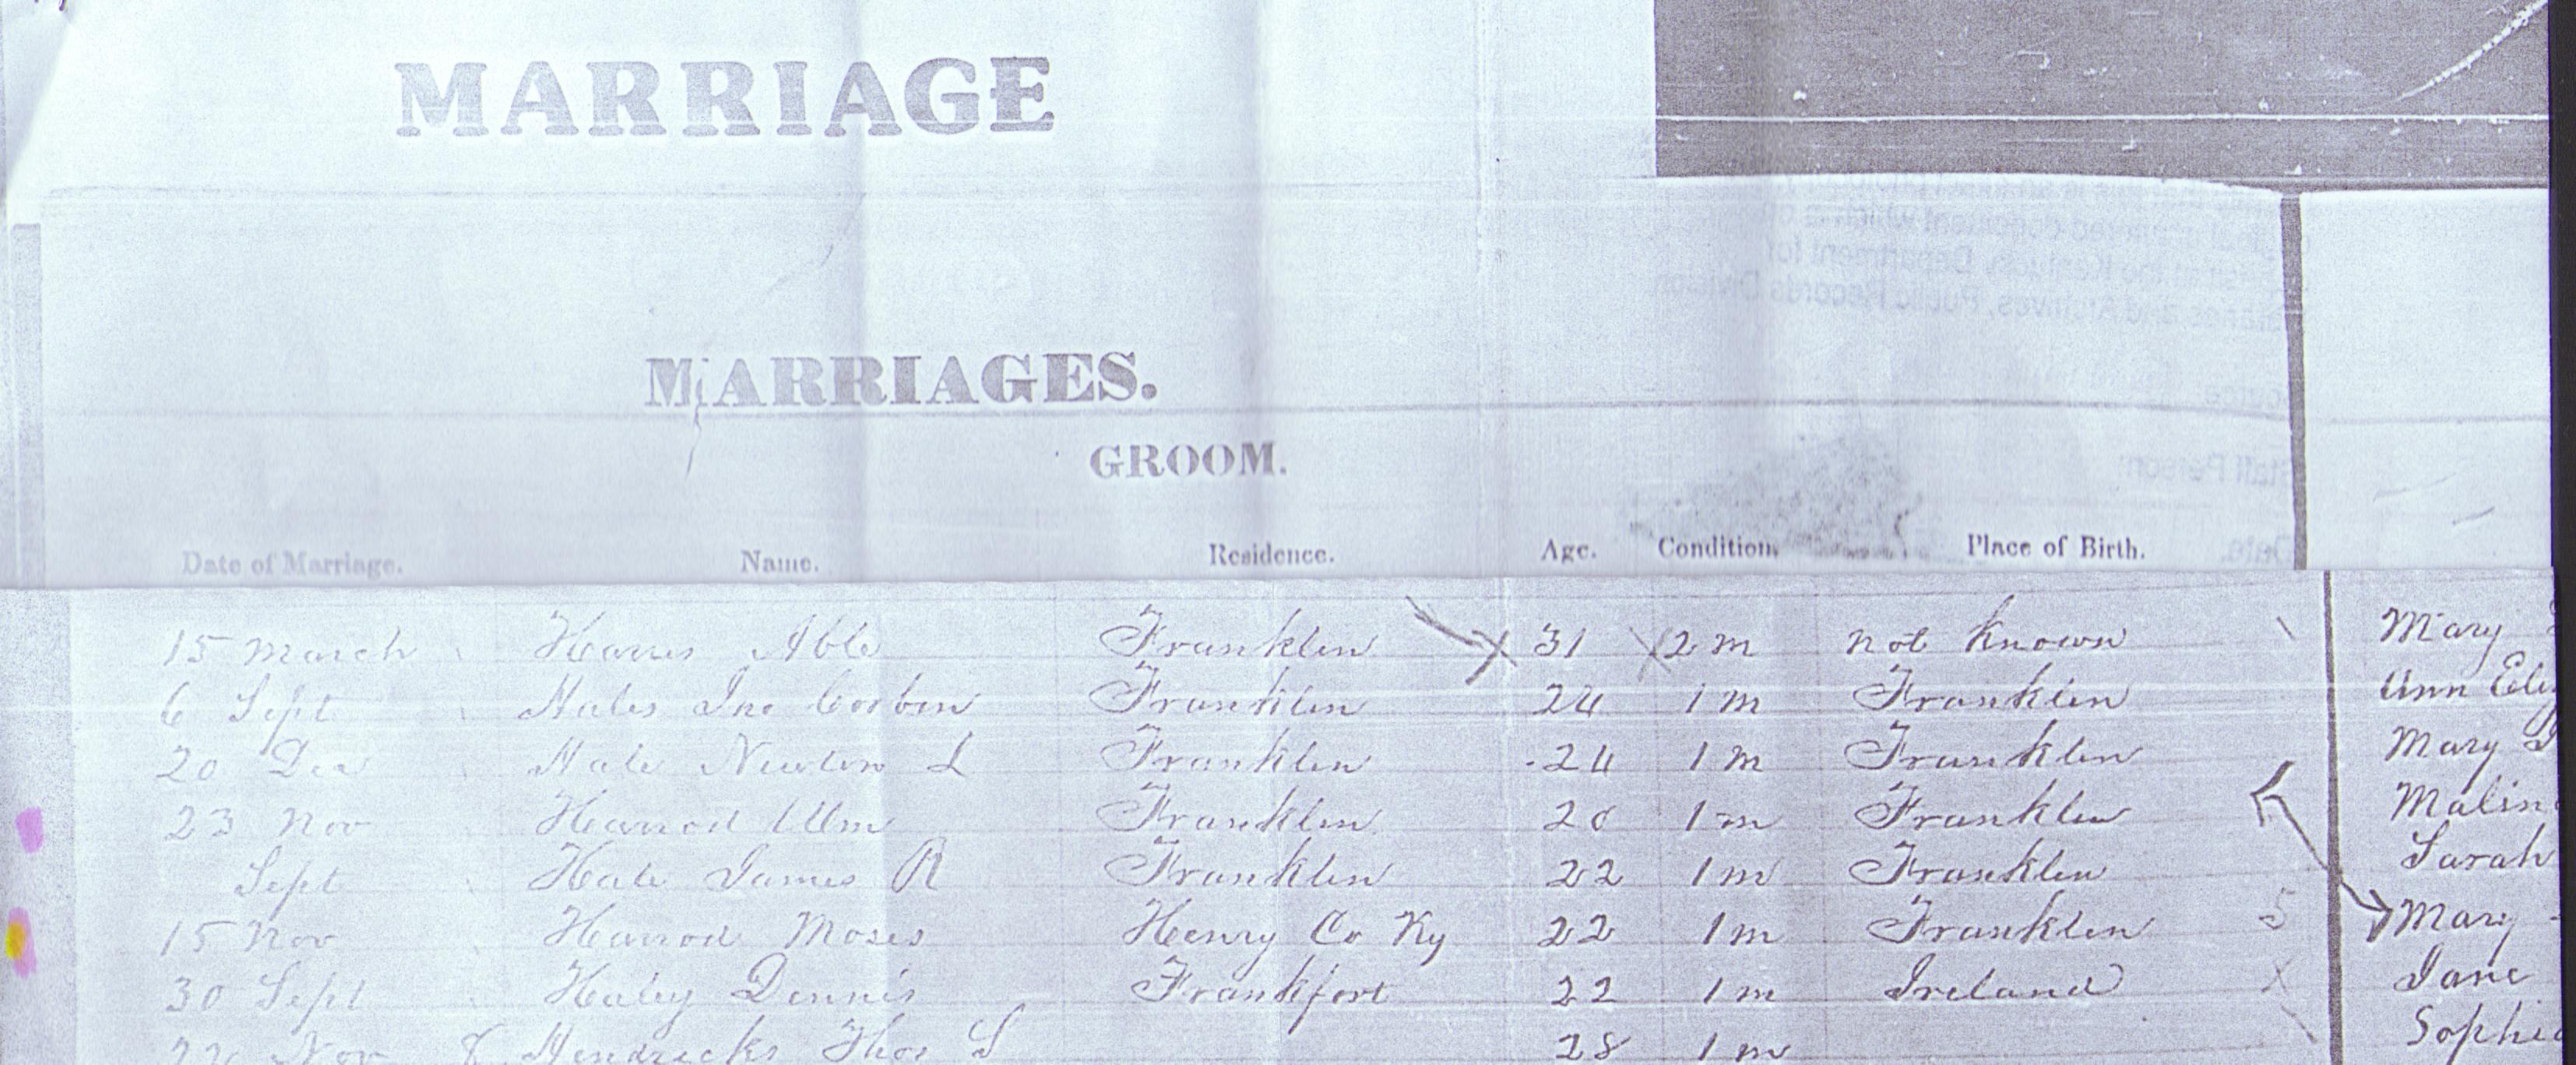 MARRIAGE
original document which is on
deposit at the Kentucky Department for
Libraries and Archives, Public Records Division
Source:
MARRIAGES.
GROOM.
Staff Person:
Date:
Date of Marriage. Name. Residence. Age. Condition. Place of Birth.
15 March Harris Able Franklin 31 2 m not known Mary
6 Sept Hales Jno Corbin Franklin 24 1 m Franklin Ann
20 Dec Hale Newton L Franklin 24 1 m Franklin Mary
23 Nov Harrod Wm Franklin 20 1 m Franklin Malin
Sept Hale James R Franklin 22 1 m Franklin Sarah
15 Nov Harrod Moses Henry Co Ky 22 1 m Franklin 5 Mary
30 Sept Haley Dennis Frankfort 22 1 m Ireland Jane
Nov Hendricks Thos S 28 1 m Sophi